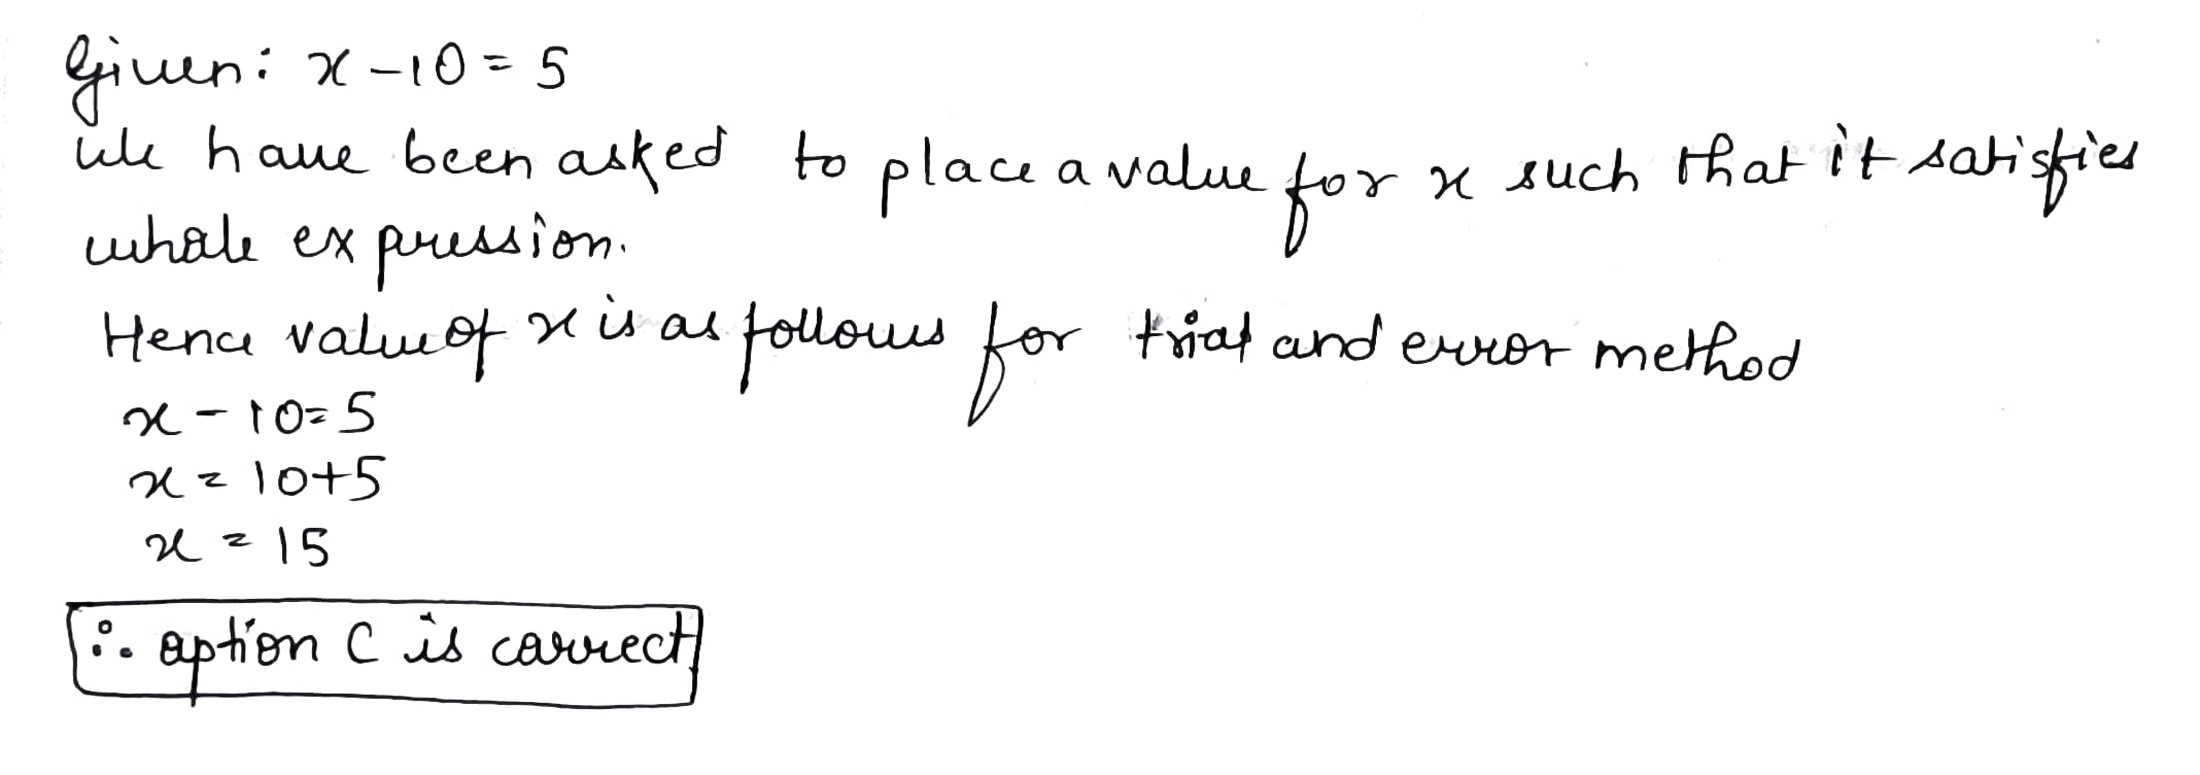 Given: x - 10 = 5
We have been asked to place a value for x such that it satisfies
whole expression.
Hence value of x is as follows for trial and error method
x - 10 = 5
x = 10+5
x = 15
∴ option C is correct